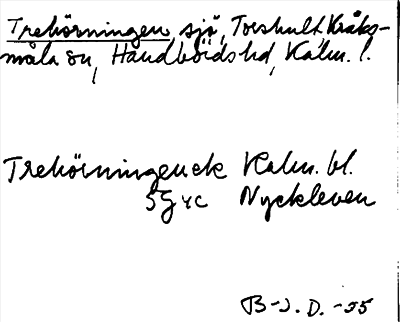 Trehörningen, sjö, Torshult, Kråks-
måla sn, Handbörds hd, Kalm. l.
Trehörningen ek Kalm. bl.
5G4c Nyckleven
B-J. D. -55